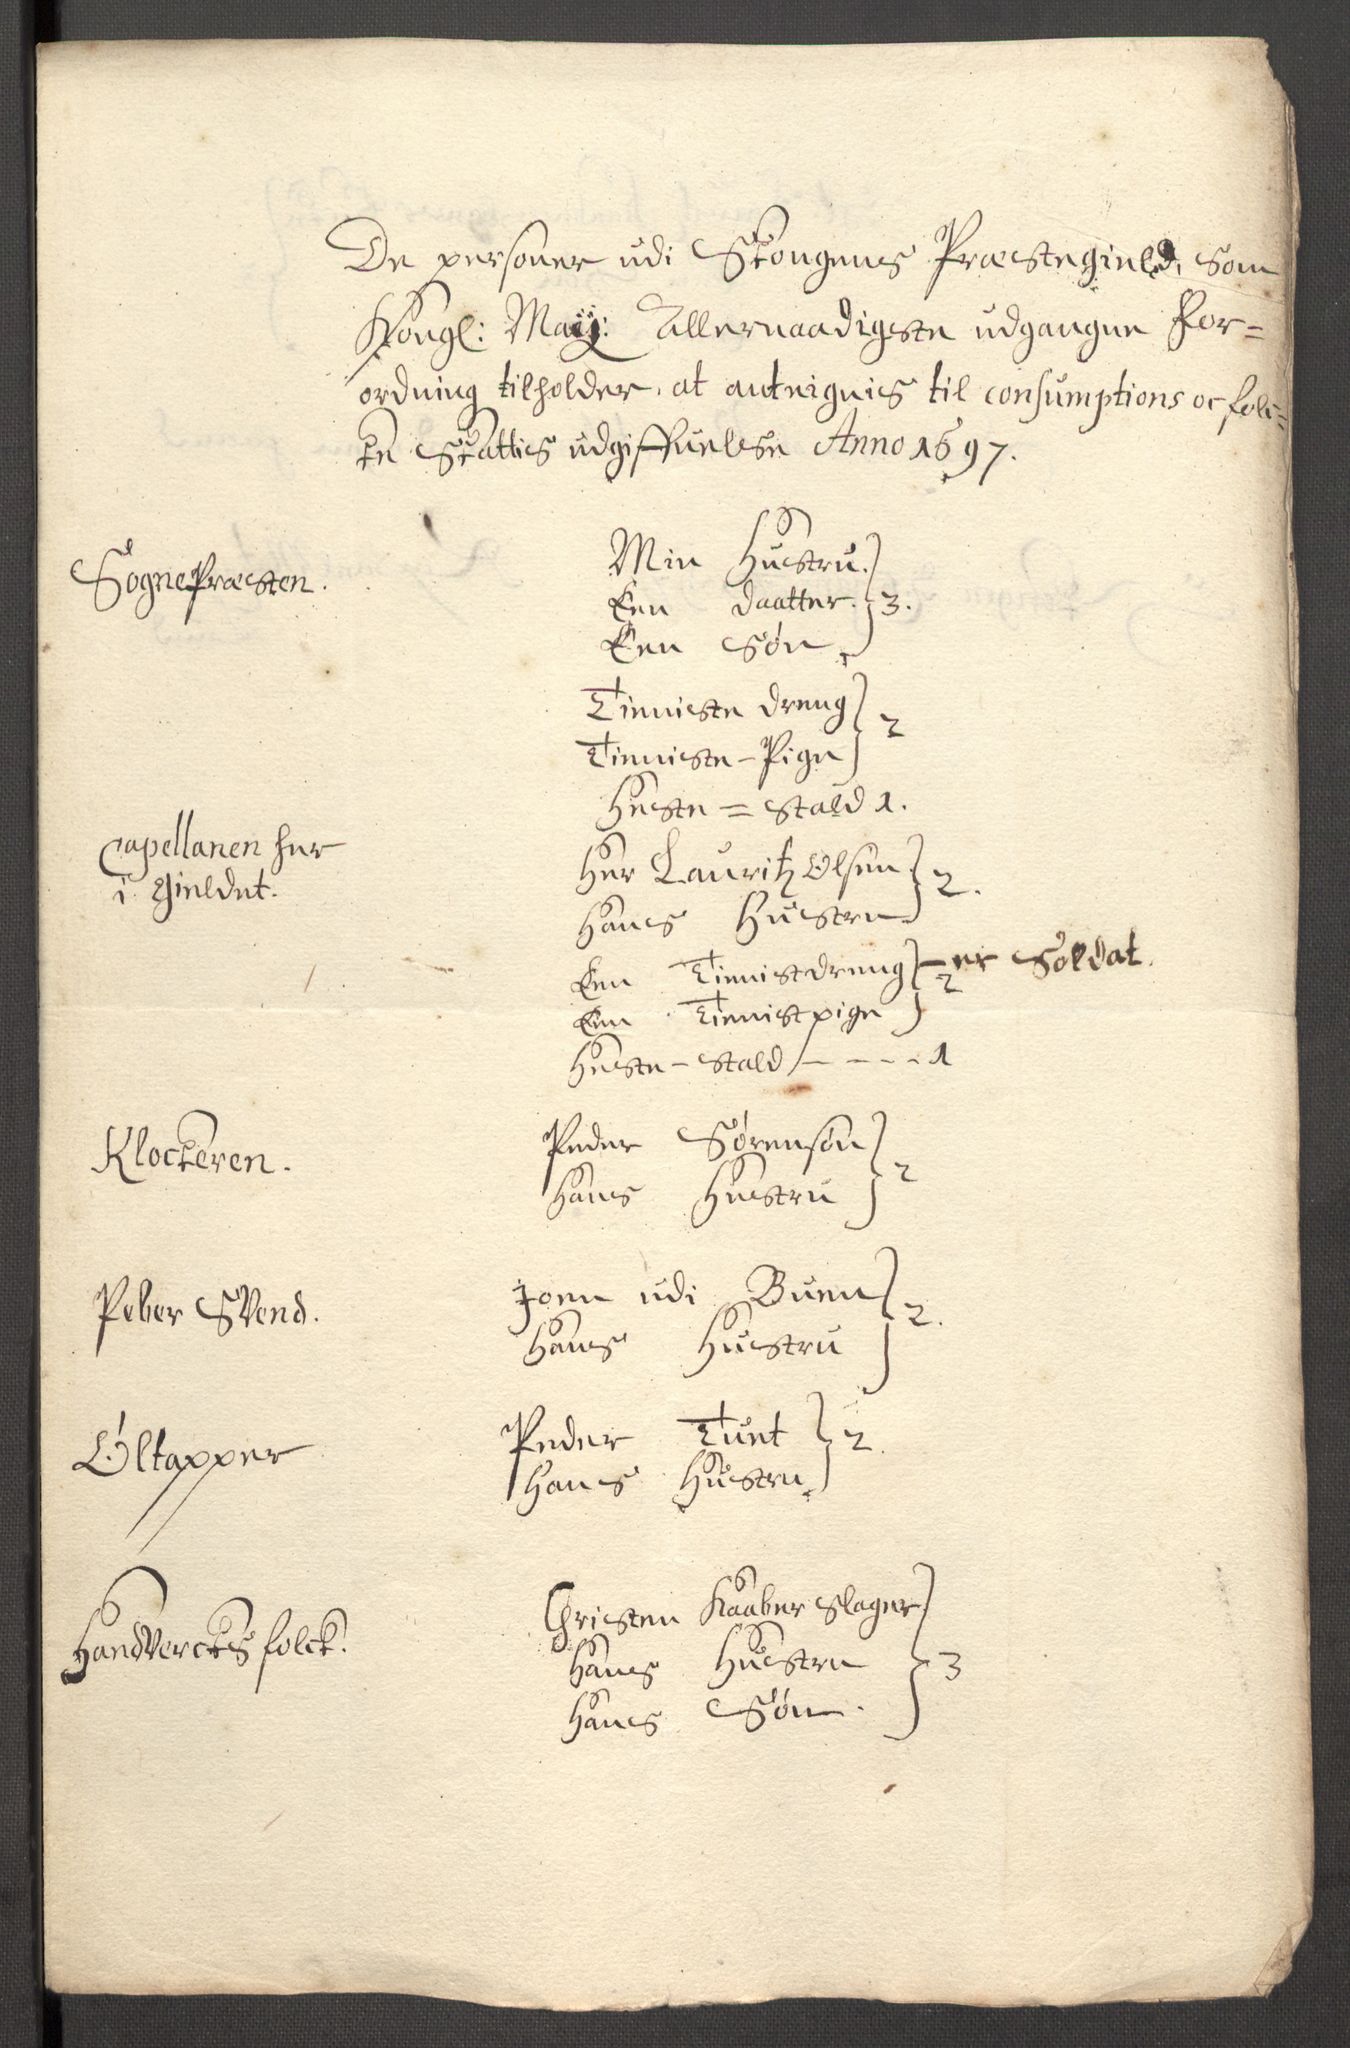 De personer udi Skougens Præstegield, som
Kongl: Maij: Allernaadigste udgangne For=
ordning tilholder, at anteignis til consumptions oc folc=
ke Skattis udgiffuelse Anno 1697.
SognePræsten.
Min Hustru.
Een daatter. 3.
Een Søn.
Tienniste dreng
Tienniste-Pige 2
Heste=stald 1.
Capellanen her
i gieldet.
Her Lauritz Olsen
Hans Hustru 2.
Een Tiennistdreng - er Soldat.
Een Tiennistpige 2
Heste-stald - - - - 1
Klockeren.
Peder Sørensøn
Hans Hustru 2
Peber Svend.
Joen udi Buen
Hans Hustru 2.
Øltapper
Peder Tuet
Hans Hustru 2.
Handvercks folck.
Christen Kaaberslager
Hans Hustru 3
Hans Søn.